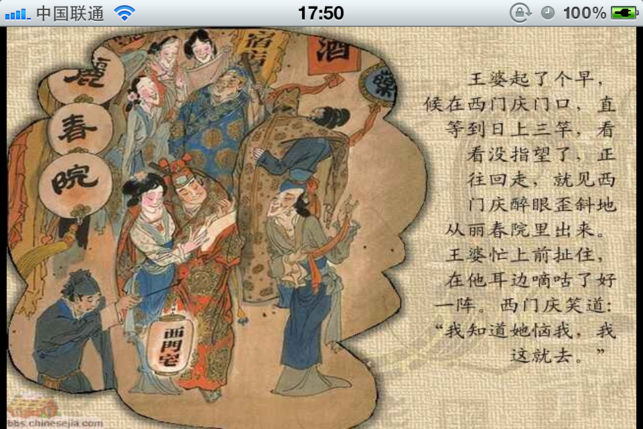 中国联通
17:50
100%
宿店
酒
藥
麗春院
西門宅
王婆起了个早，
候在西门庆门口，直
等到日上三竿，看
看没指望了，正
往回走，就见西
门庆醉眼歪斜地
从丽春院里出来。
王婆忙上前扯住，
在他耳边嘀咕了好
一阵。西门庆笑道：
“我知道她恼我，我
这就去。”
bbs.chinesejia.com